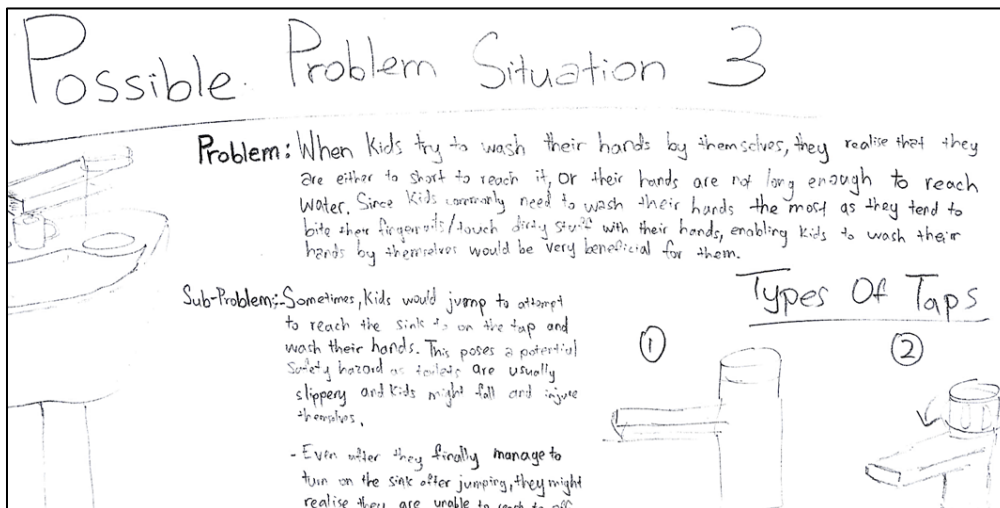 Possible Problem Situation 3
Problem: When kids try to wash their hands by themselves, they realise that they
are either to short to reach it, or their hands are not long enough to reach
water. Since kids commonly need to wash their hands the most as they tend to
bite their fingernails/touch dirty stuff with their hands, enabling kids to wash their
hands by themselves would be very beneficial for them.
Sub-Problem:- Sometimes, kids would jump to attempt
to reach the sink to on the tap and
wash their hands. This poses a potential
safety hazard as toilets are usually
slippery and kids might fall and injure
themselves.
- Even after they finally manage to
turn on the sink after jumping, they might
realise they are unable to reach to off
Types Of Taps
1
2